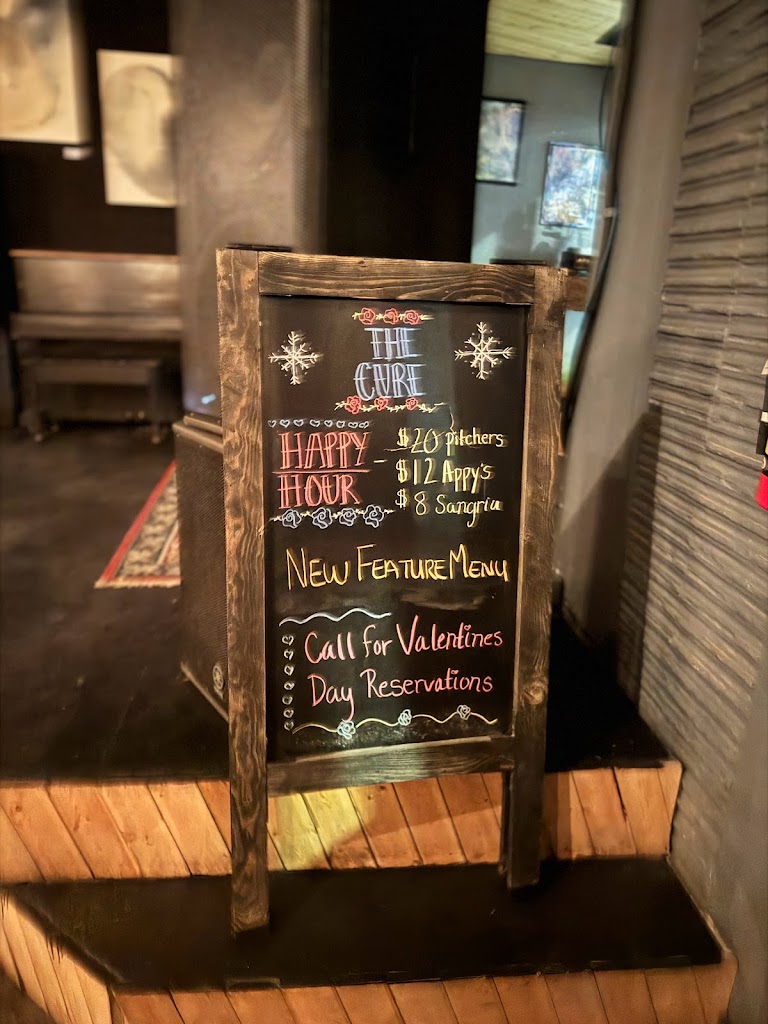 THE
CURE
HAPPY
HOUR
$20 pitchers
$12 Appy's
$8 Sangria
NEW FEATURE MENU
Call for Valentines
Day Reservations